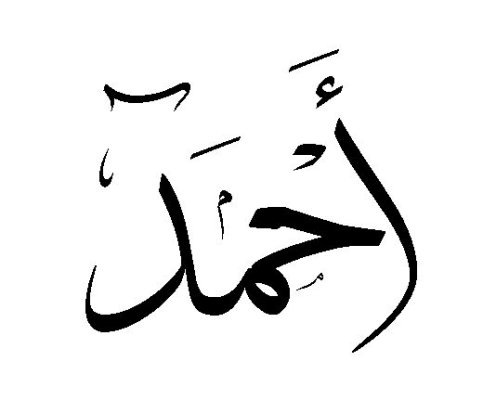 أَحْمَد